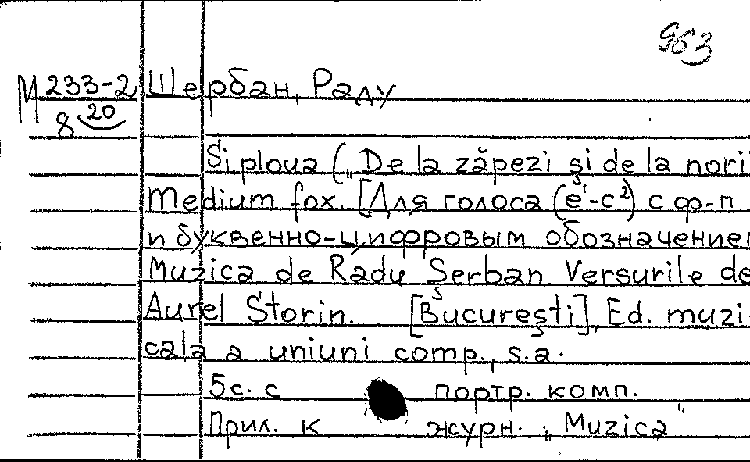 963
М 233-2 Шербан, Раду
8 20
Si ploua („De la zăpezi şi de la norii
Medium fox. [Для голоса (e¹-c²) с ф-п
и буквенно-цифровым обозначением
Muzica de Radu Şerban Versurile de
Aurel Storin. [Bucureşti], Ed. muzi-
cala a uniuni comp., s.a.
5с. с портр. комп.
Прил. к журн. „Muzica"